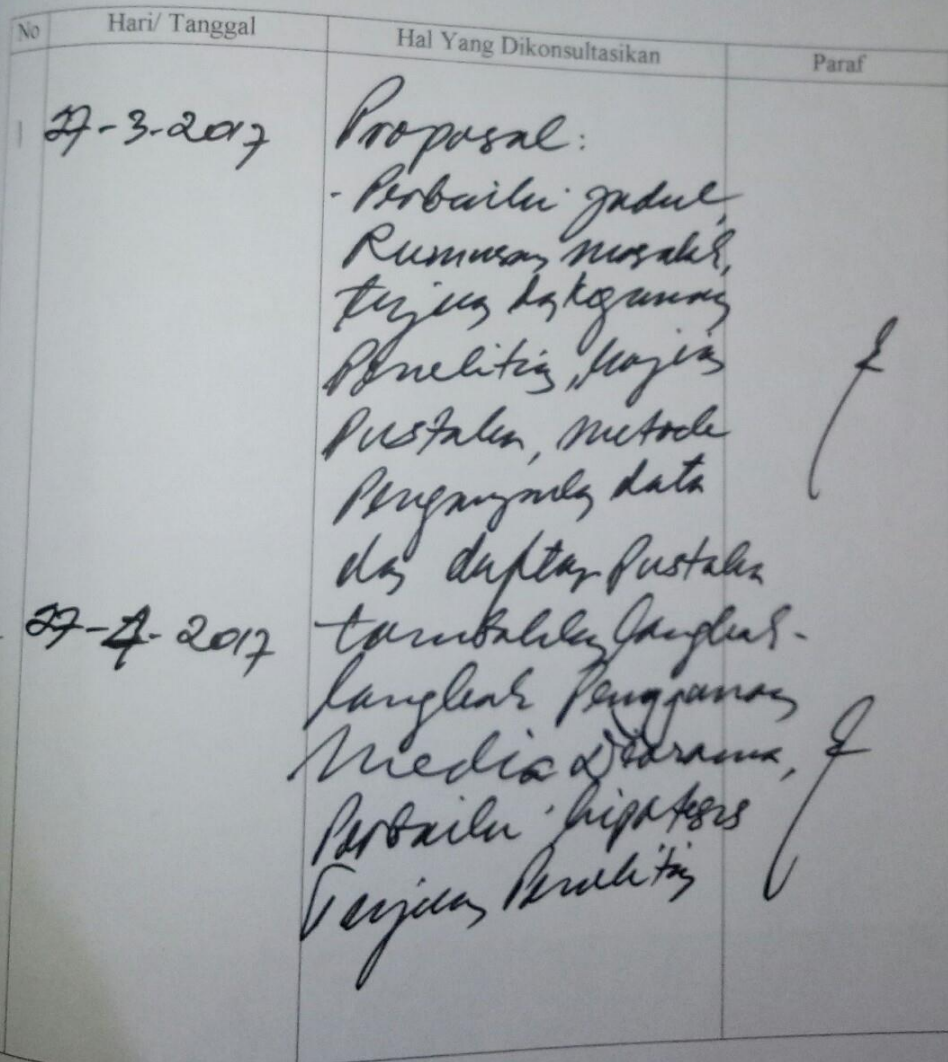 No Hari/ Tanggal Hal Yang Dikonsultasikan Paraf
1 27-3-2017 Proposal:
- Perbaiki judul,
Rumusan masalah,
tujuan dan kegunaan
Penelitian, kajian
Pustaka, metode
Pengumpulan data
dan daftar Pustaka
27-4-2017 tambahkan langkah-
langkah Penggunaan
Media Diorama,
Perbaiki hipotesis
Tujuan Penelitian